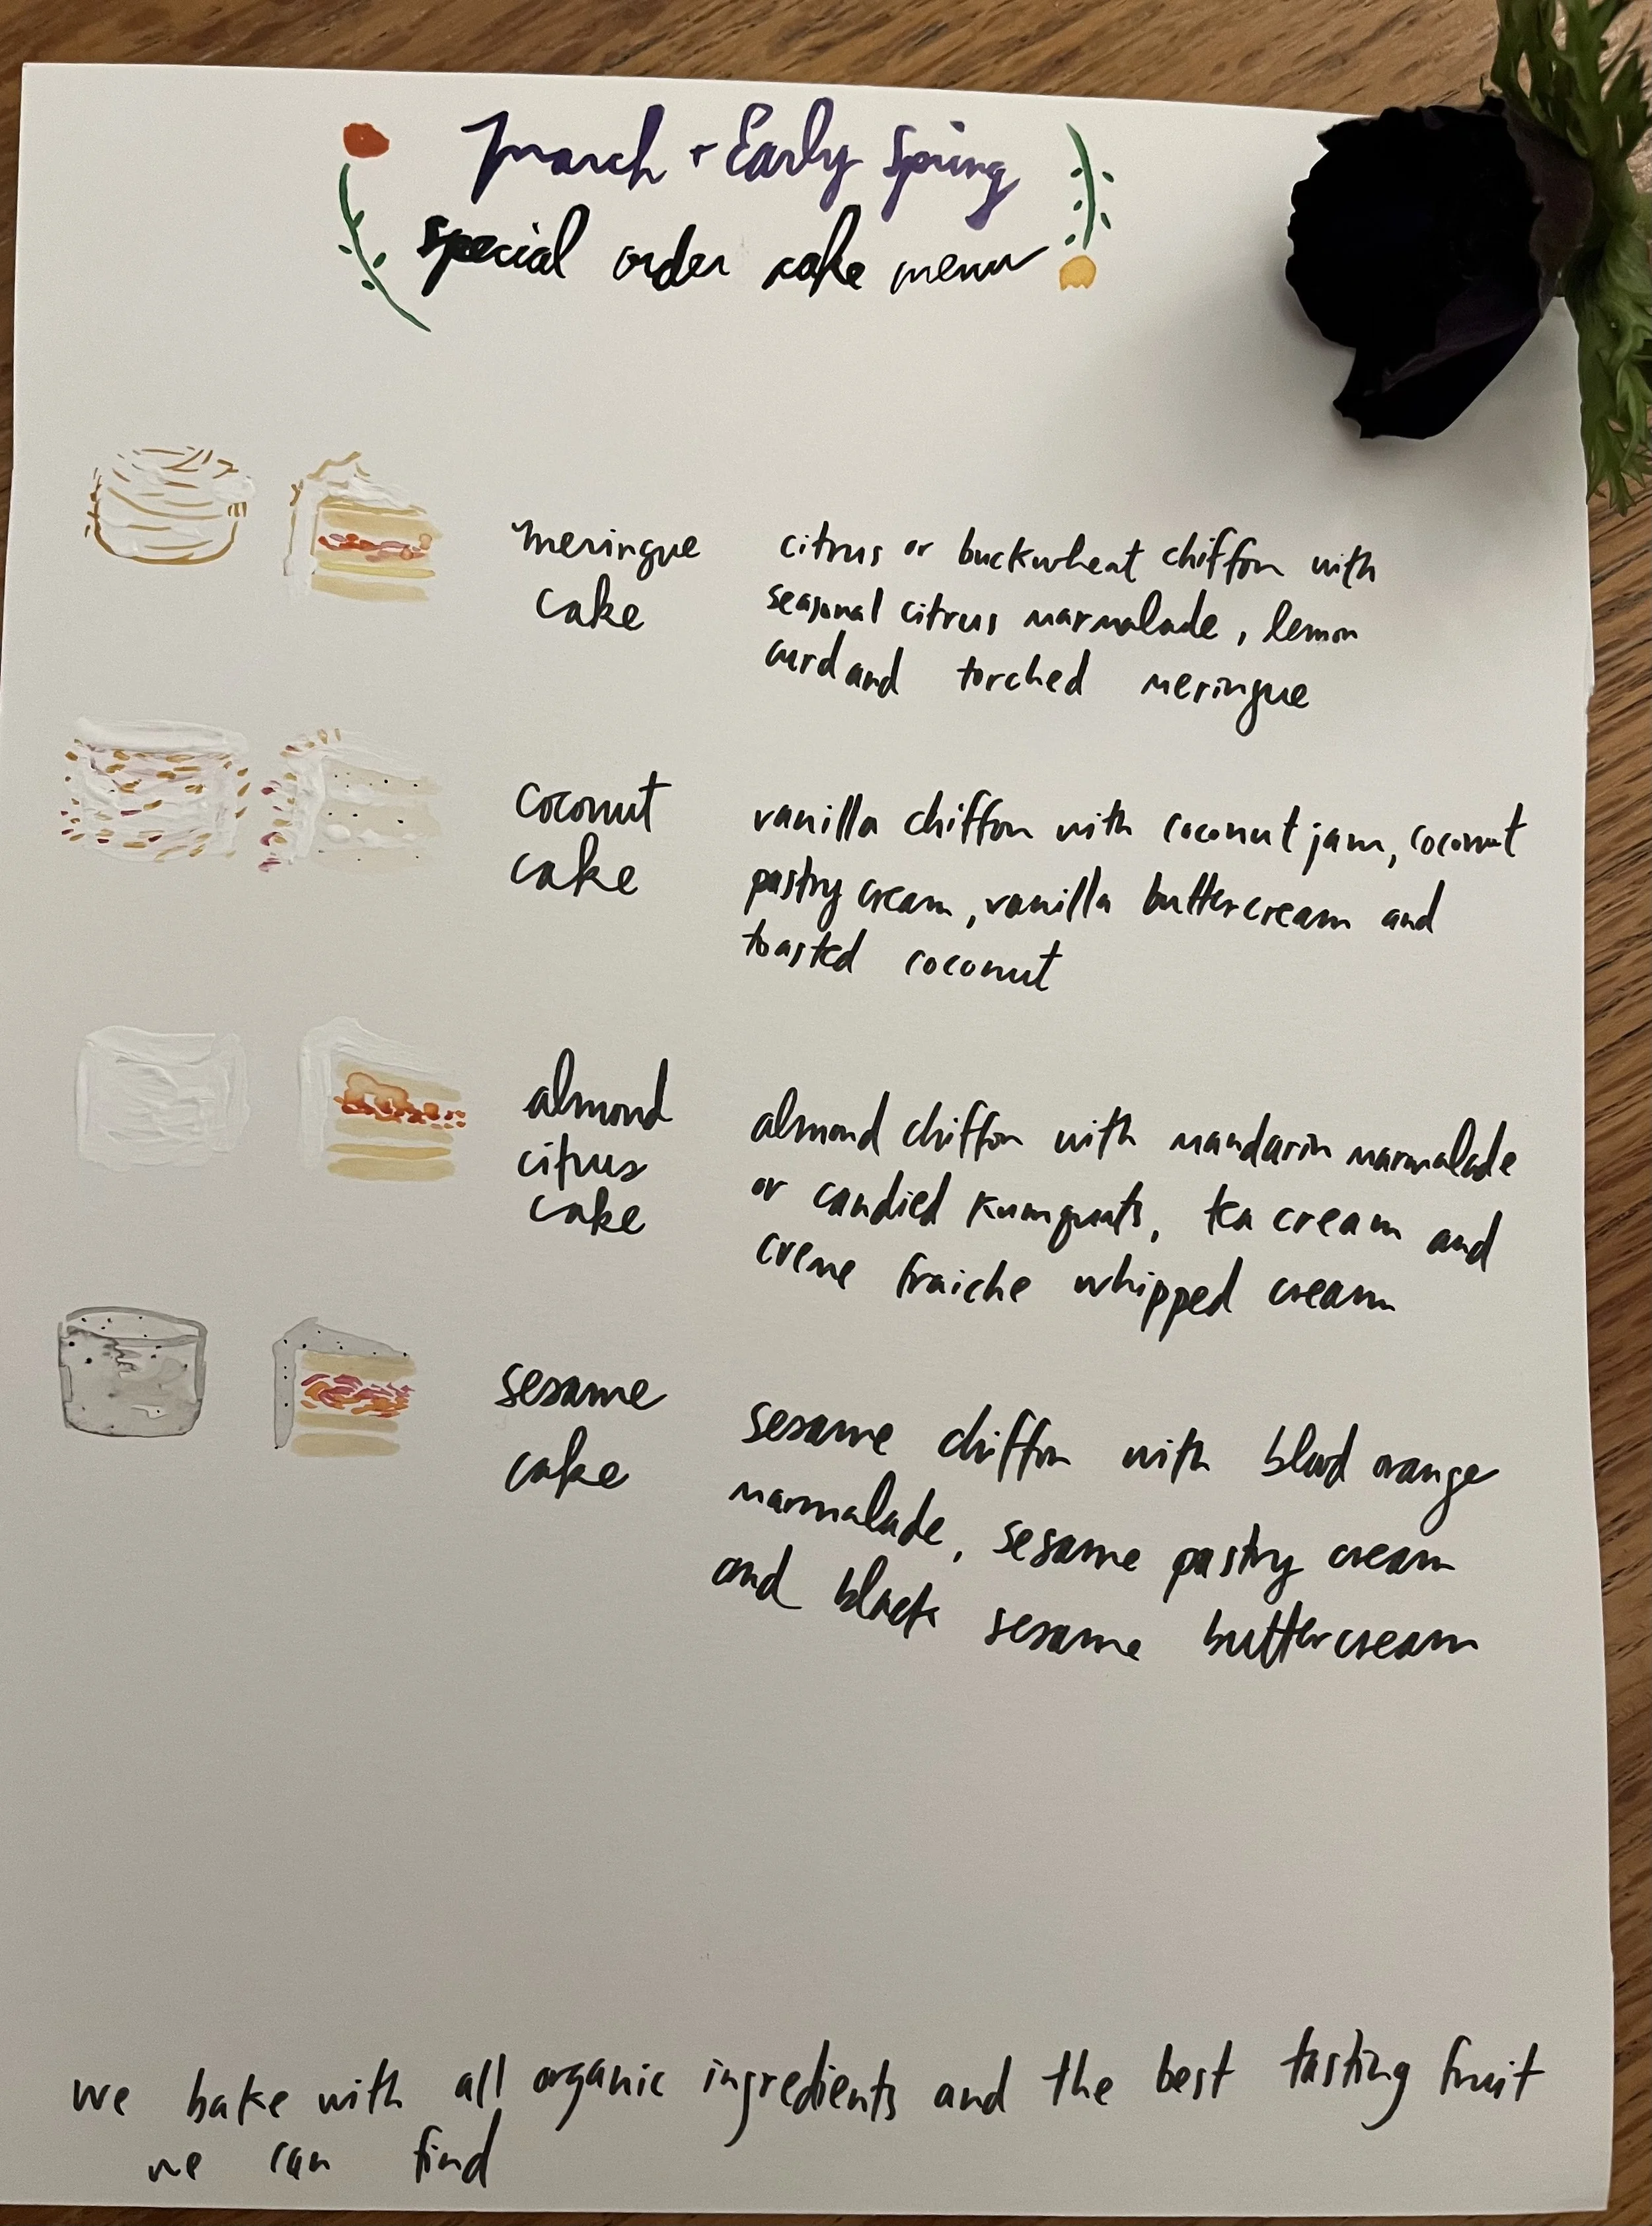 March + Early Spring
special order cake menu
meringue
cake
citrus or buckwheat chiffon with
seasonal citrus marmalade, lemon
curd and torched meringue
coconut
cake
vanilla chiffon with coconut jam, coconut
pastry cream, vanilla buttercream and
toasted coconut
almond
citrus
cake
almond chiffon with mandarin marmalade
or candied kumquats, tea cream and
creme fraiche whipped cream
sesame
cake
sesame chiffon with blood orange
marmalade, sesame pastry cream
and black sesame buttercream
we bake with all organic ingredients and the best tasting fruit
we can find